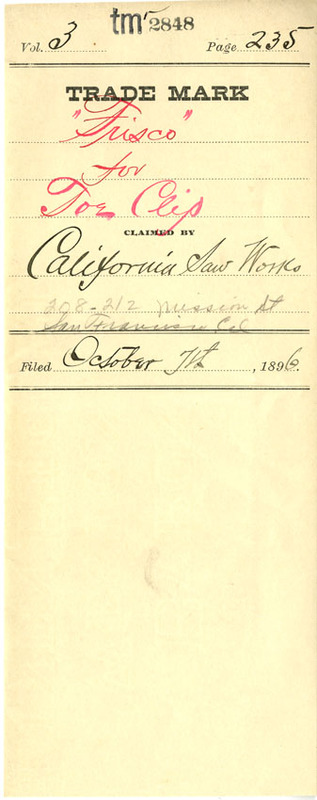 tm 2848
Vol. 3 Page 235
TRADE MARK
"Frisco"
for
Toe Clip
CLAIMED BY
California Saw Works
208-212 Mission St
San Francisco Cal
Filed October 7th, 1896.